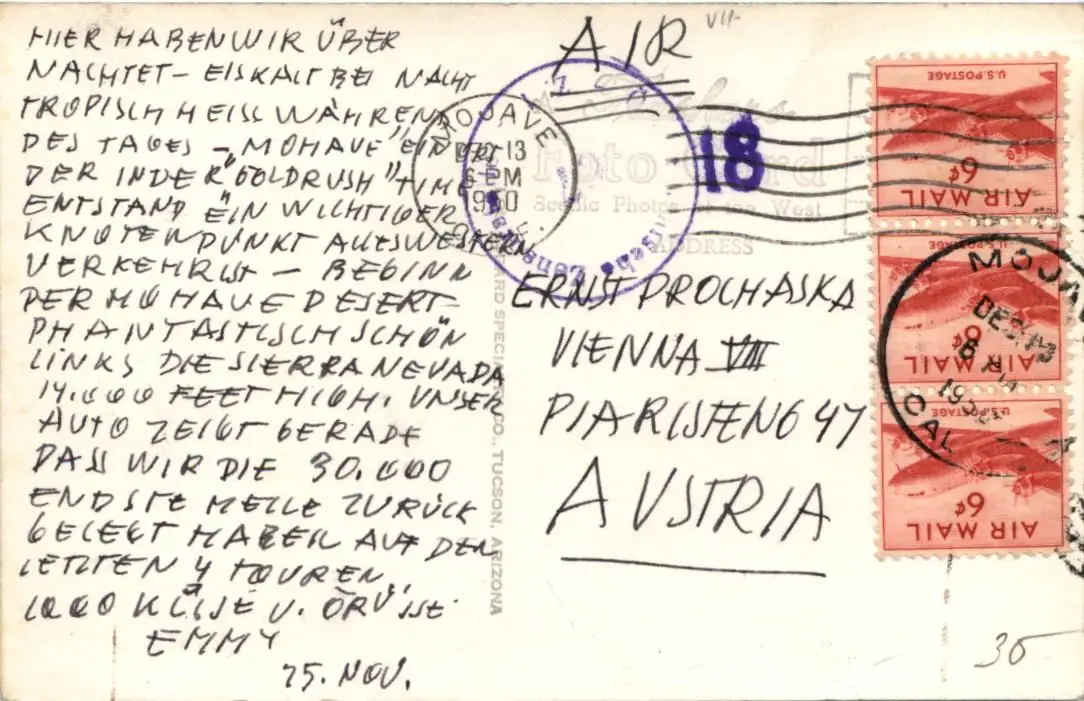 HIER HABEN WIR ÜBER
NACHTET – EISKALT BEI NACHT
TROPISCH HEISS WÄHREND
DES TAGES – "MOHAVE" EIN
DER IN DER "GOLDRUSH" TIME
ENTSTAND EIN WICHTIGER
KNOTENPUNKT
VERKEHR IST – BEGINN
DER MOHAVE DESERT –
PHANTASTISCH SCHÖN
LINKS DIE SIERRA NEVADA
14.000 FEET HIGH. UNSER
AUTO ZEIGT GERADE
DASS WIR DIE 30.000
ENDSTE MEILE ZURÜCK
GELEGT HABEN AUF DEN
LETZTEN 4 TOUREN.
1000 KÜSSE U. GRÜSSE
EMMY
25. NOV.
AIR
VII
MOJAVE
13
PM
1950
18
Foto Card
Scenic Photos of the West
ADDRESS
ERNST PROCHASKA
VIENNA VIII
PIARISTENG 47
AUSTRIA
CO., TUCSON, ARIZONA
U.S. POSTAGE
6¢
AIR MAIL
U.S. POSTAGE
6¢
AIR MAIL
U.S. POSTAGE
6¢
AIR MAIL
CAL
30